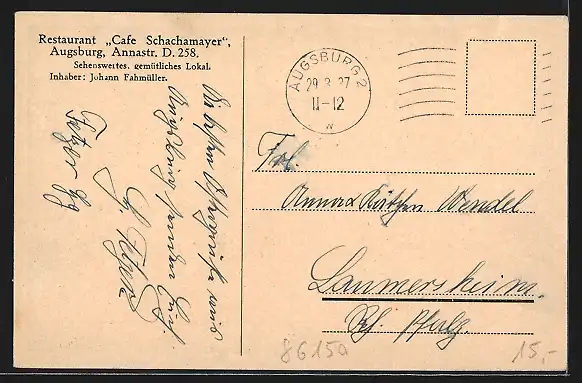 Restaurant „Cafe Schachamayer",
Augsburg, Annastr. D. 258.
Sehenswertes, gemütliches Lokal.
Inhaber: Johann Fahmüller.
AUGSBURG 2
29 3 27
11-12
w
Die besten Ostergrüße aus
Augsburg
Frl.
Anna & Käthen Wendel
Laumersheim.
Rh. Pfalz.
86150
15,-